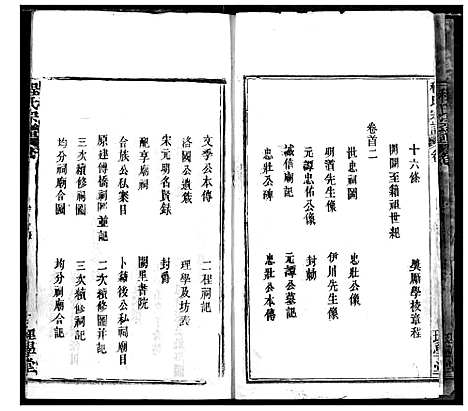 十六條
開閩至藉祖世起 奠鄹學校章程
卷首二
世忠祠圖 忠壯公像
明道先生像 伊川先生像
元譚忠佑公像 封勅
誠信廟記 元譚公墓記
忠壯公碑 忠壯公本傳
文季公本傳 二程祠記
洛國公遺蹟 理學及坊表
宋元明名賢錄 封爵
配享廟祠 闕里書院
合族公私案目 卜鑄後公私祠廟目
原建傅橋祠圖並記 二次續修圖並記
三次續修祠圖 三次續修祠記
均分祠廟合圖 均分祠廟合記
程氏宗譜
理學堂